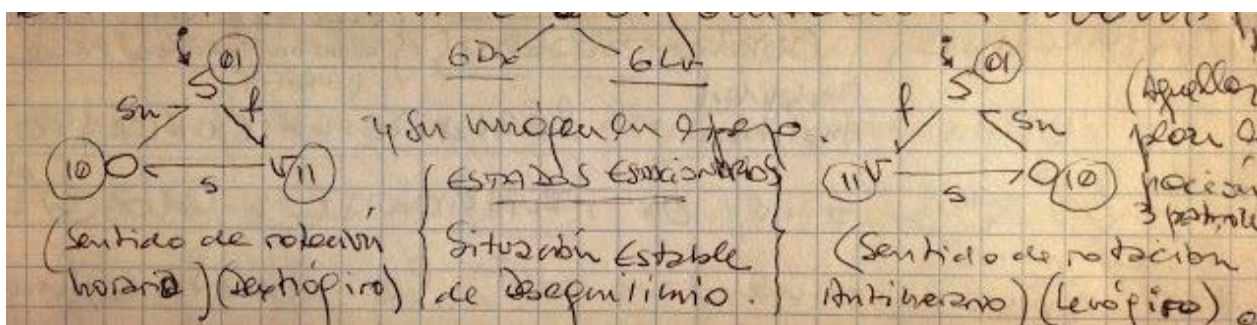 S 01
Sn f
10 O s V 11
(Sentido de rotación
horario) (Dextrógiro)
6Dx 6Lv
y su imágen en espejo.
ESTADOS ESTACIONARIOS
Situación Estable
de Desequilibrio.
S 01
f Sn
11 V s O 10
(Sentido de rotación
Antihorario) (Levógiro)
(Aquellos